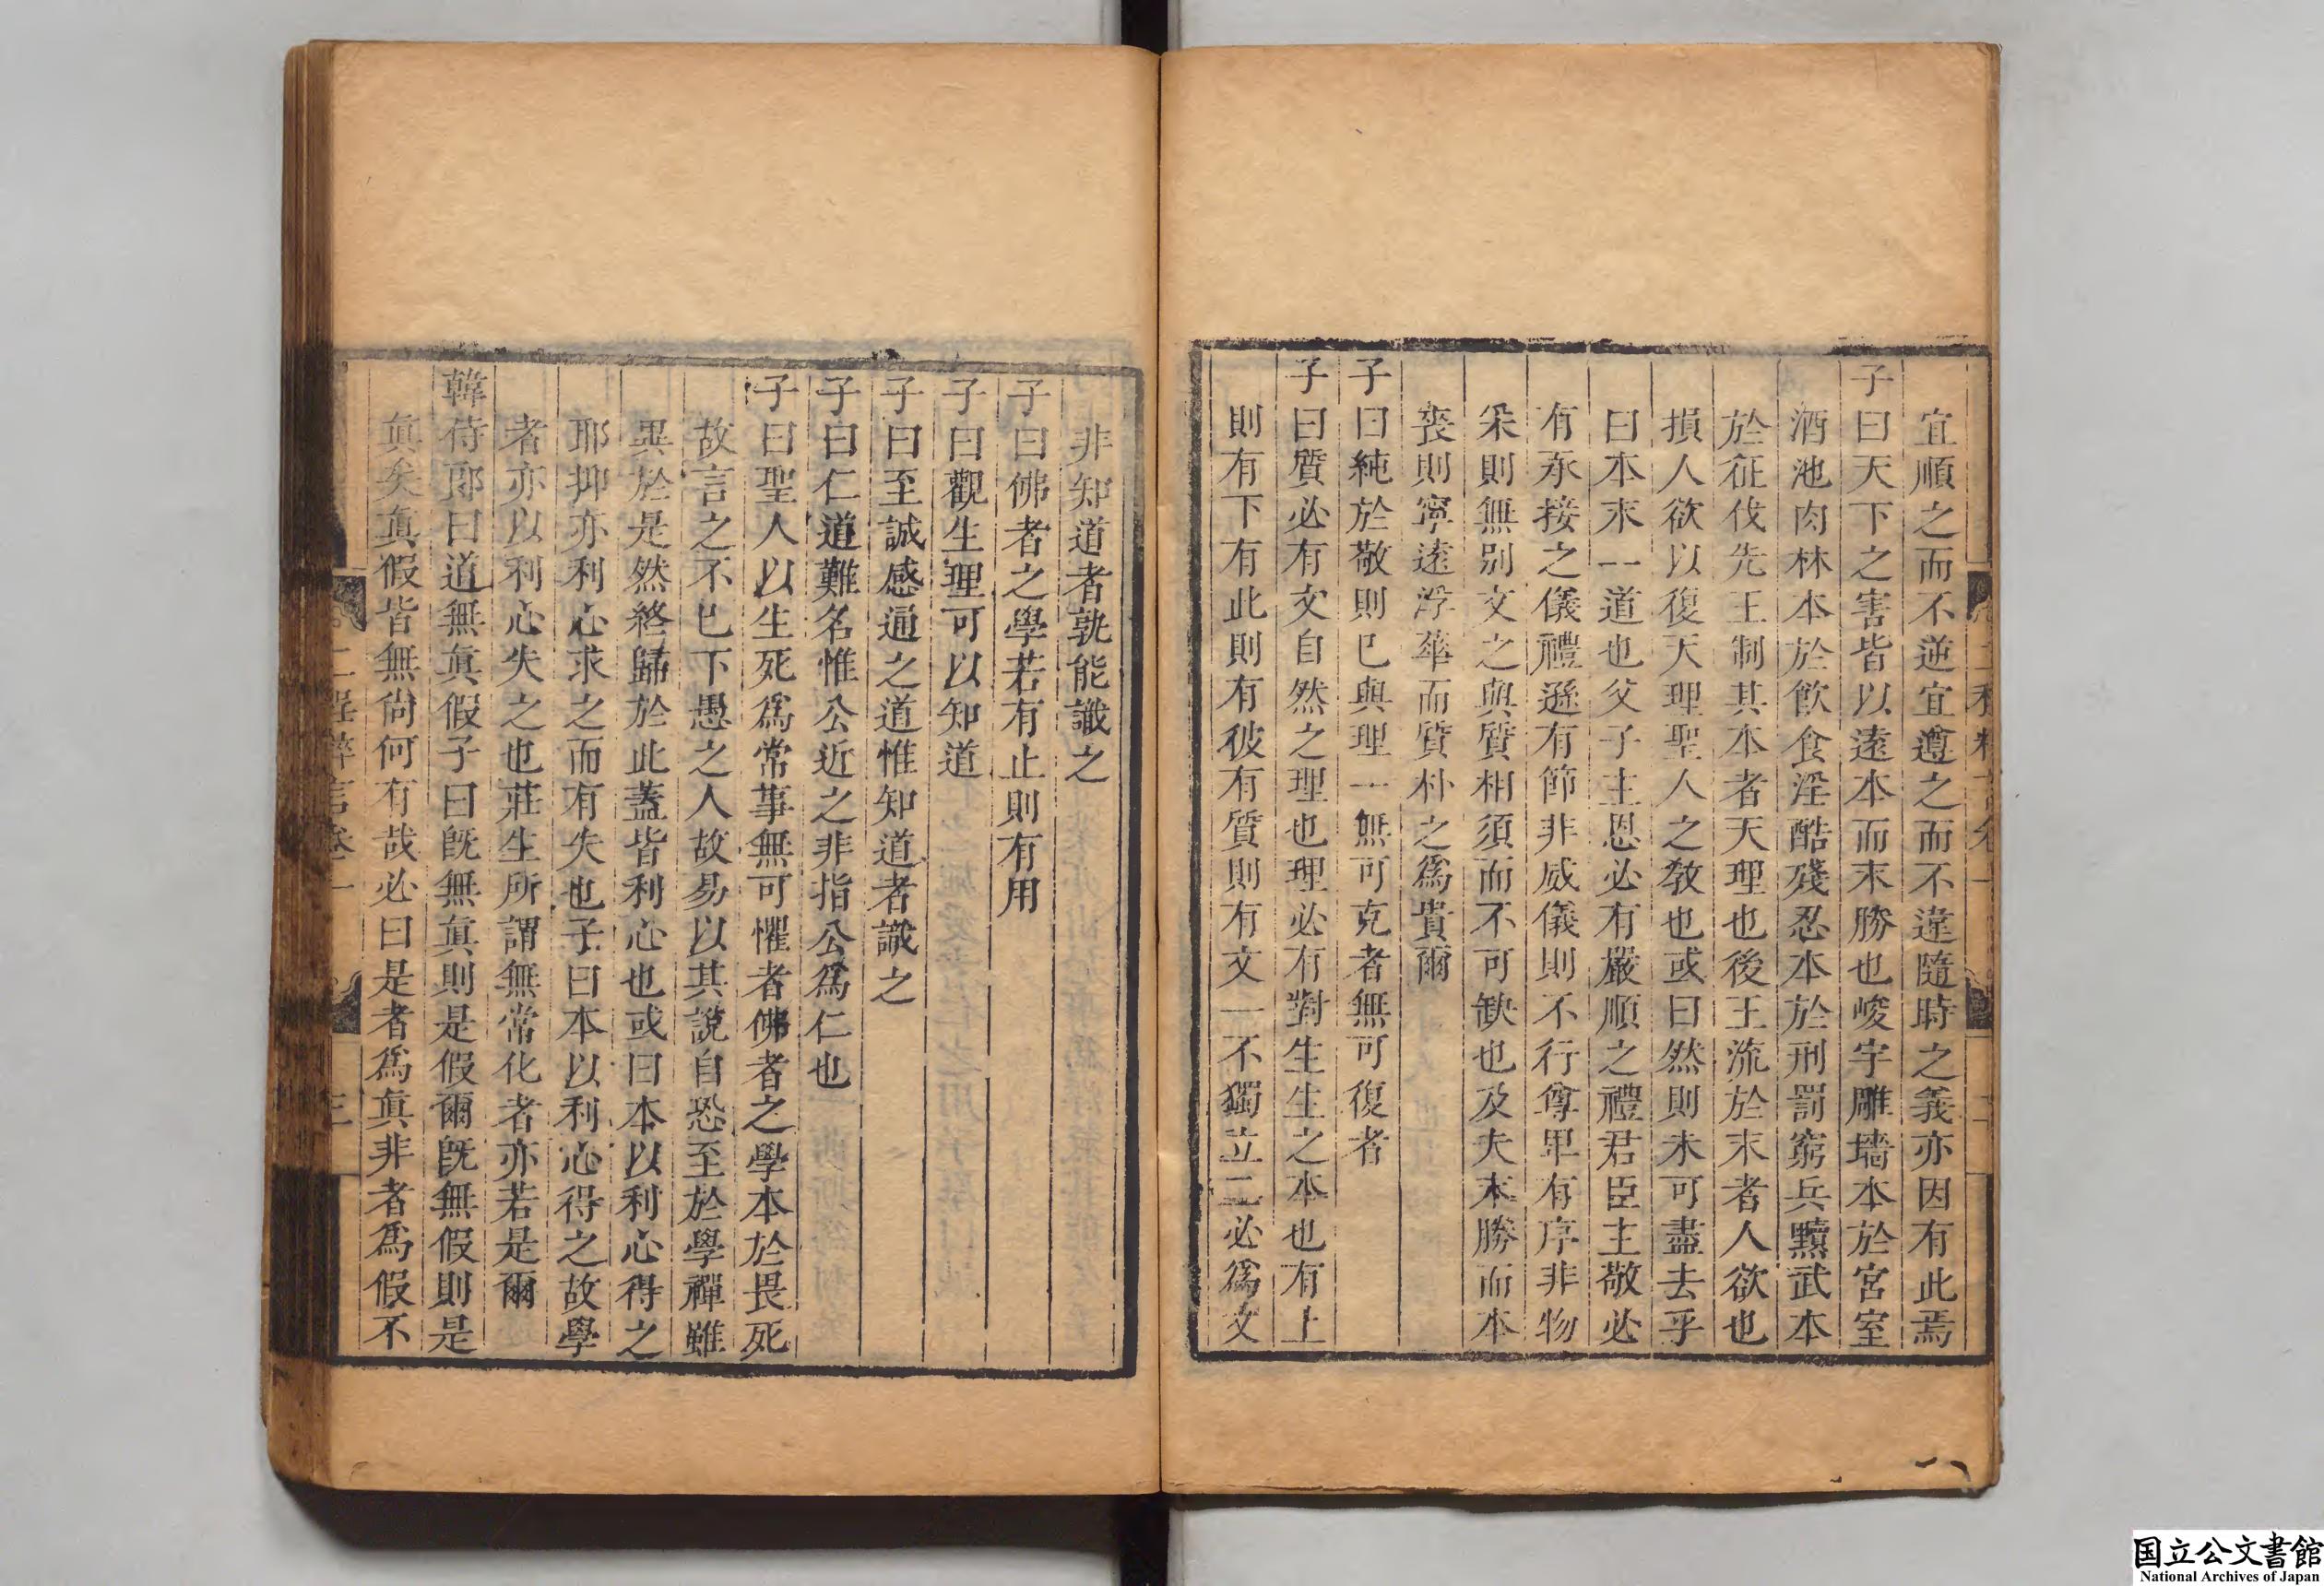 宜順之而不逆宜遵之而不違隨時之義亦因有此焉
子曰天下之害皆以遠本而末勝也峻宇雕墻本於宮室
酒池肉林本於飲食淫酷殘忍本於刑罰窮兵黷武本
於征伐先王制其本者天理也後王流於末者人欲也
損人欲以復天理聖人之教也或曰然則未可盡去乎
曰本末一道也父子主恩必有嚴順之禮君臣主敬必
有承接之儀禮遜有節非威儀則不行尊卑有序非物
采則無別文之與質相須而不可缺也及夫末勝而本
喪則寧遠浮華而質朴之爲貴爾
子曰純於敬則已與理一無可克者無可復者
子曰質必有文自然之理也理必有對生生之本也有上
則有下有此則有彼有質則有文一不獨立二必爲文
非知道者孰能識之
子曰佛者之學若有止則有用
子曰觀生理可以知道
子曰至誠感通之道惟知道者識之
子曰仁道難名惟公近之非指公爲仁也
子曰聖人以生死爲常事無可懼者佛者之學本於畏死
故言之不已下愚之人故易以其說自恐至於學禪雖
異於是然終歸於此蓋皆利心也或曰本以利心得之
耶抑亦利心求之而有失也子曰本以利心得之故學
者亦以利心失之也莊生所謂無常化者亦若是爾
韓侍郎曰道無眞假子曰旣無眞則是假爾旣無假則是
眞矣眞假皆無尙何有哉必曰是者爲眞非者爲假不
二程粹言卷一
三
国立公文書館
National Archives of Japan